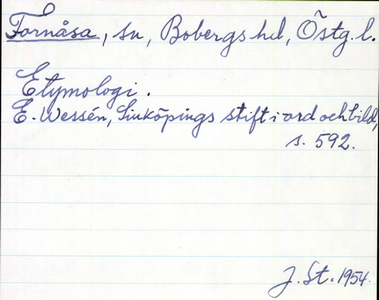 Fornåsa, sn, Bobergs hd, Östg. l.
Etymologi.
E. Wessén, Linköpings stift i ord och bild,
s. 592.
J. St. 1954.